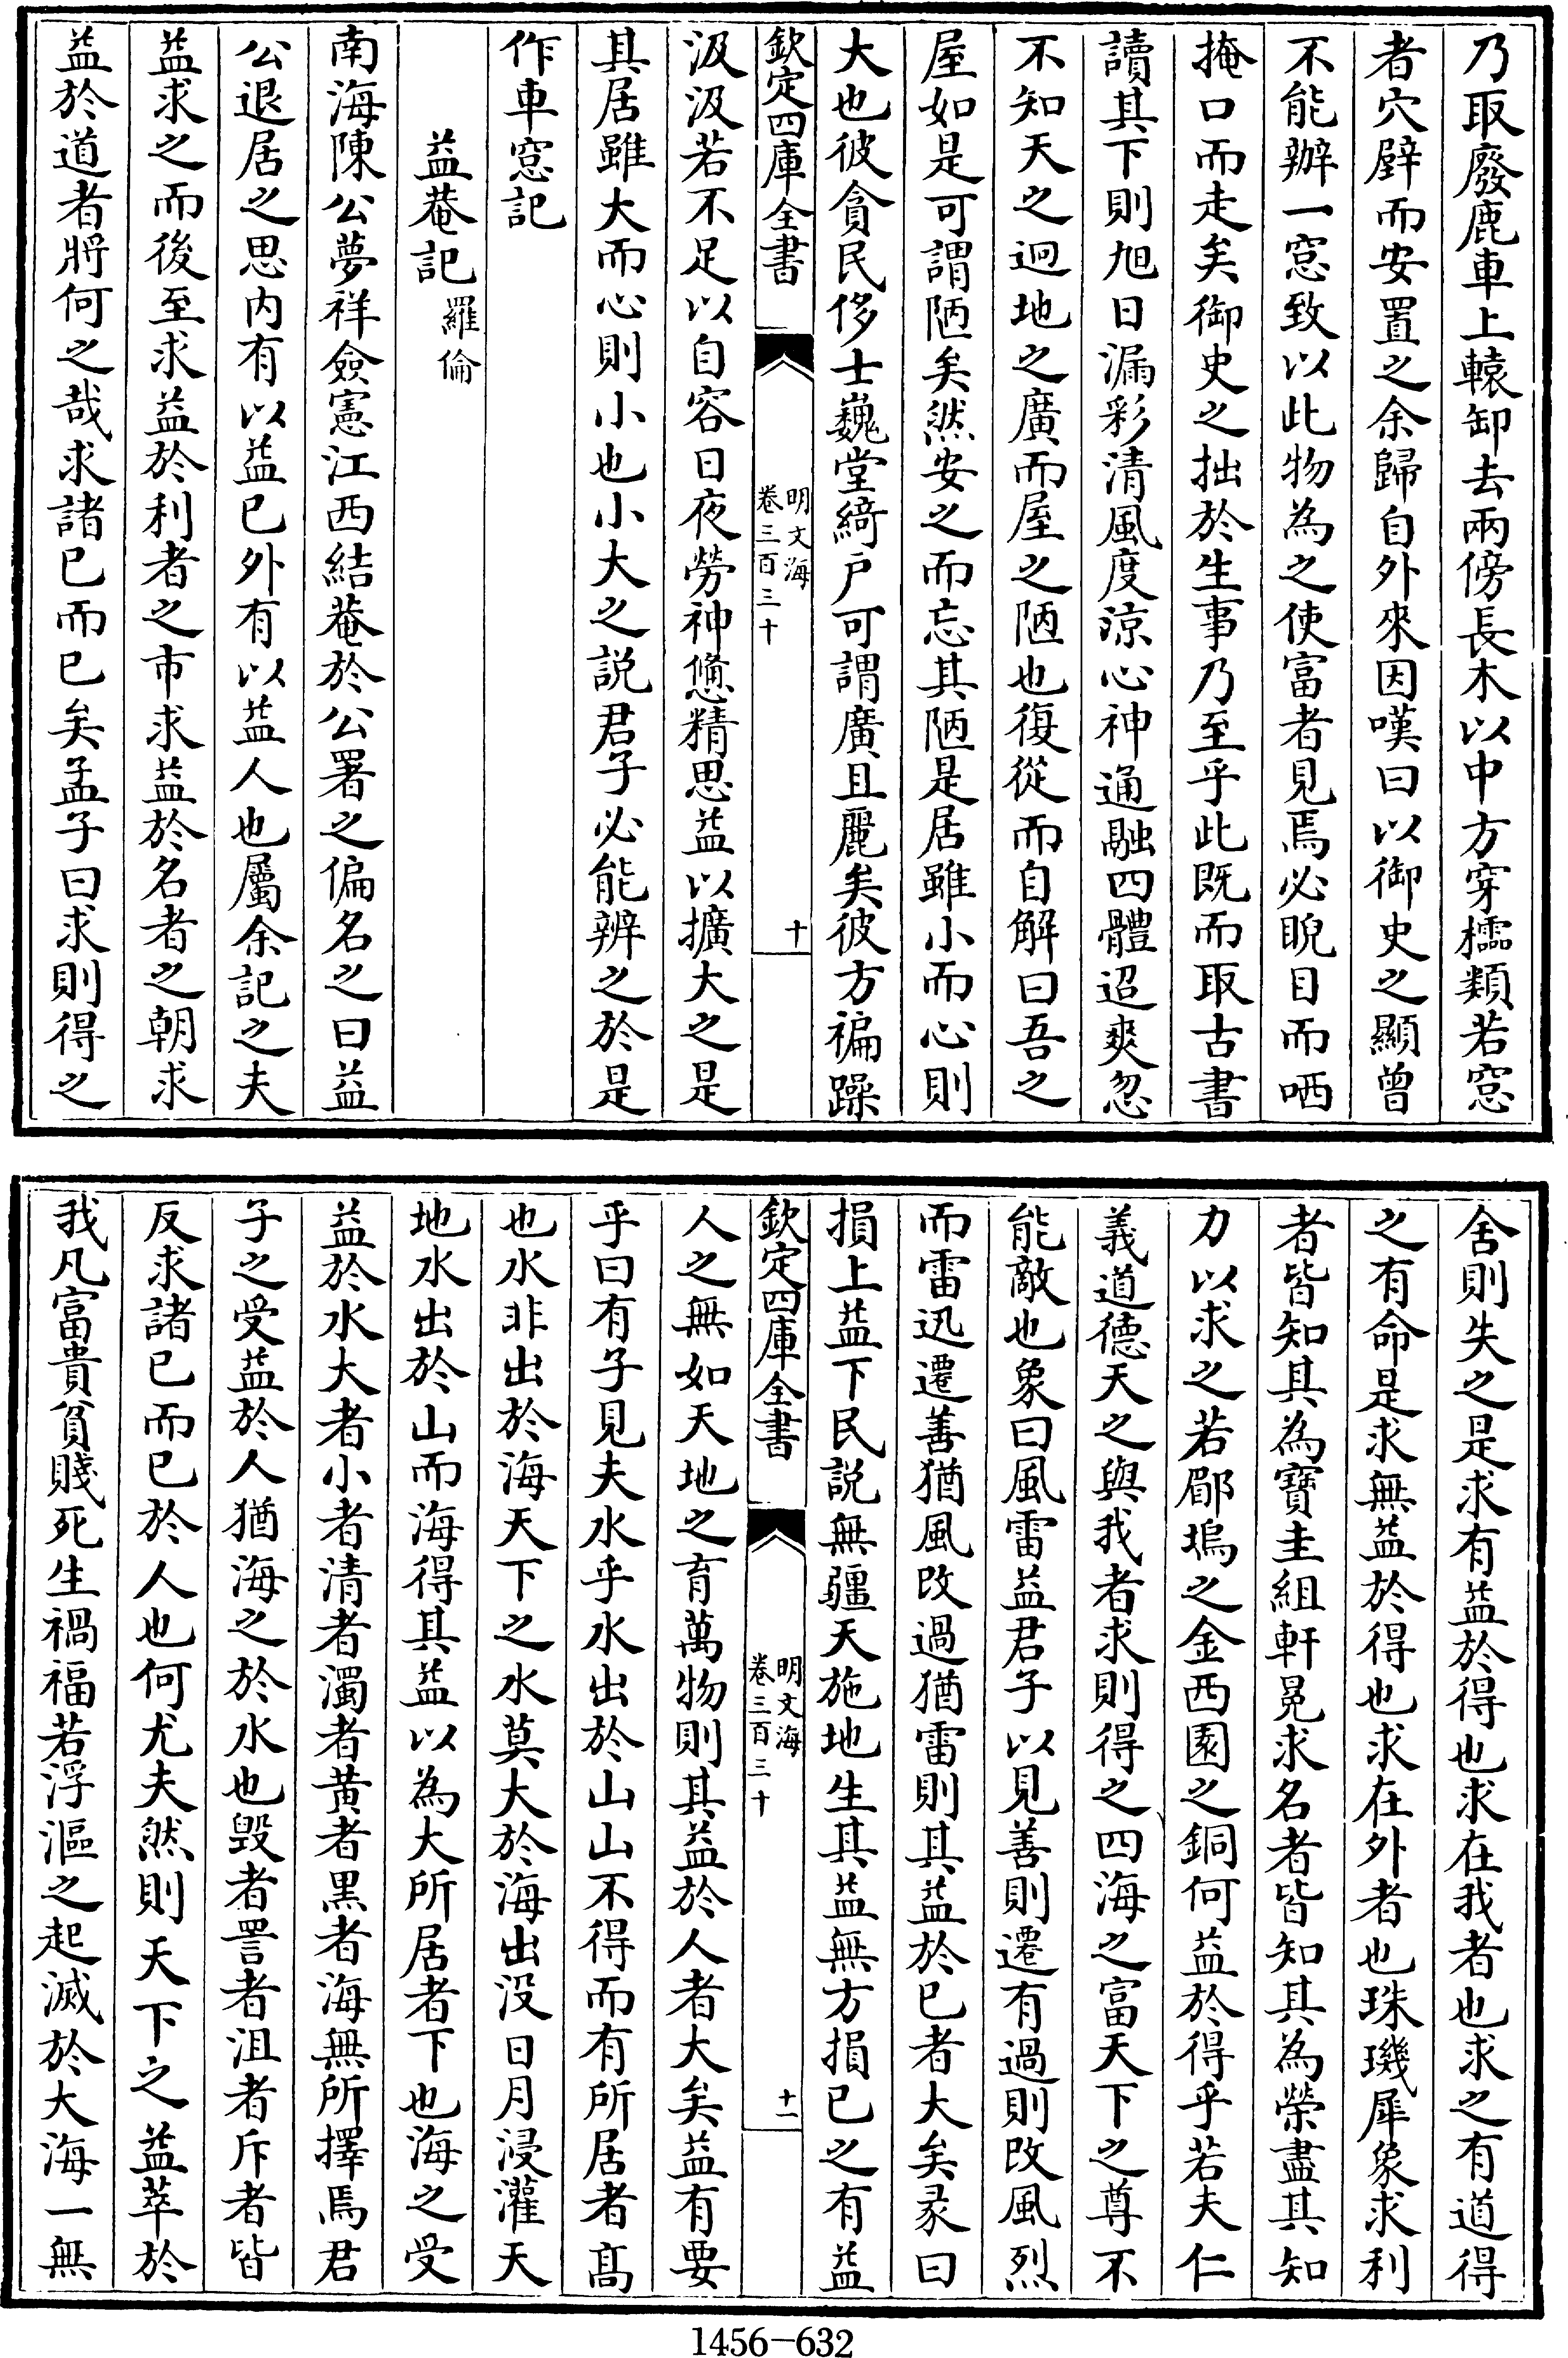 乃取廢鹿車上轅卸去兩傍長木以中方穿櫺類若窓
者穴壁而安置之余歸自外來因嘆曰以御史之顯曾
不能辦一窓致以此物為之使富者見焉必睨目而哂
掩口而走矣御史之拙於生事乃至乎此既而取古書
讀其下則旭日漏彩清風度涼心神通融四體迢爽忽
不知天之迥地之廣而屋之陋也復從而自解曰吾之
屋如是可謂陋矣然安之而忘其陋是居雖小而心則
大也彼貪民侈士巍堂綺户可謂廣且麗矣彼方褊躁
欽定四庫全書
明文海
卷三百三十
十
汲汲若不足以自容日夜勞神憊精思益以擴大之是
其居雖大而心則小也小大之説君子必能辨之於是
作車窓記
益菴記 羅倫
南海陳公夢祥僉憲江西結菴於公署之偏名之曰益
公退居之思内有以益已外有以益人也屬余記之夫
益求之而後至求益於利者之市求益於名者之朝求
益於道者將何之哉求諸已而已矣孟子曰求則得之
舍則失之是求有益於得也求在我者也求之有道得
之有命是求無益於得也求在外者也珠璣犀象求利
者皆知其為寶圭組軒冕求名者皆知其為榮盡其知
力以求之若郿塢之金西園之銅何益於得乎若夫仁
義道德天之與我者求則得之四海之富天下之尊不
能敵也象曰風雷益君子以見善則遷有過則改風烈
而雷迅遷善猶風改過猶雷則其益於已者大矣彖曰
損上益下民説無疆天施地生其益無方損已之有益
欽定四庫全書
明文海
卷三百三十
十一
人之無如天地之育萬物則其益於人者大矣益有要
乎曰有子見夫水乎水出於山山不得而有所居者髙
也水非出於海天下之水莫大於海出没日月浸灌天
地水出於山而海得其益以為大所居者下也海之受
益於水大者小者清者濁者黄者黑者海無所擇焉君
子之受益於人猶海之於水也毁者詈者沮者斥者皆
反求諸已而已於人也何尤夫然則天下之益萃於
我凡富貴貧賤死生禍福若浮漚之起滅於大海一無
1456-632